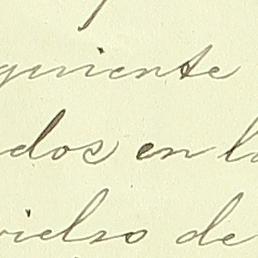 guiente
dos en la
vielso de